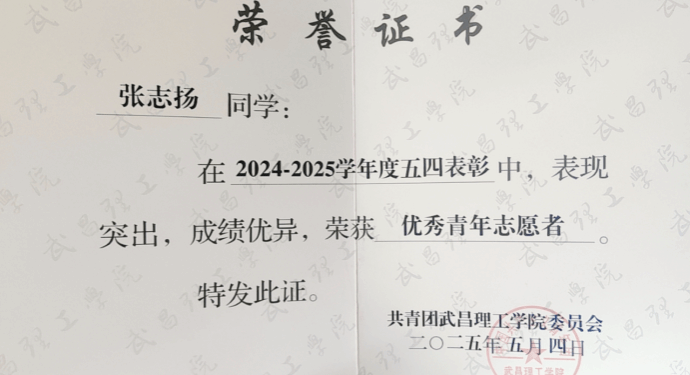 荣誉证书
张志扬 同学：
在 2024-2025学年度五四表彰 中，表现
突出，成绩优异，荣获 优秀青年志愿者 。
特发此证。
共青团武昌理工学院委员会
二〇二五年五月四日
武昌理工学院